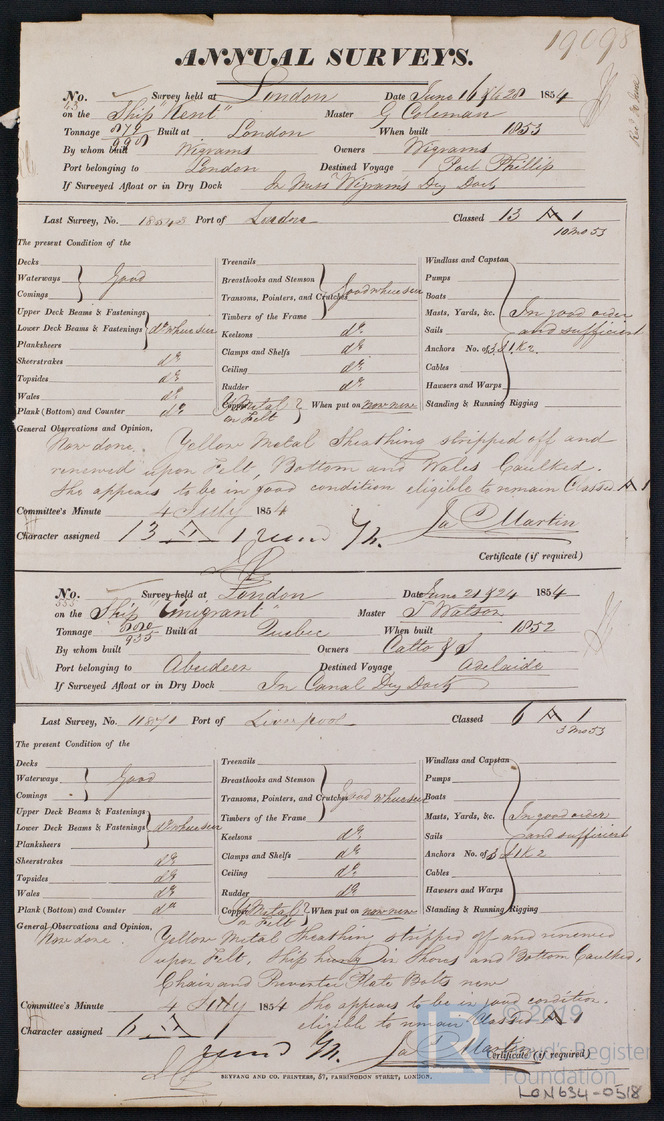 19098
ANNUAL SURVEYS.
No. 43 Survey held at London Date June 16 & 28 1854
on the Ship "Kent" Master G Coleman
Tonnage Built at London When built 1853
By whom built Wigrams Owners Wigrams
Port belonging to London Destined Voyage Port Phillip
If Surveyed Afloat or in Dry Dock In Messrs Wigrams Dry Dock
Last Survey, No. 18543 Port of London Classed 13 A 1
10 Mo 53
The present Condition of the
Decks
Waterways } Good
Comings
Upper Deck Beams & Fastenings
Lower Deck Beams & Fastenings } do where seen
Planksheers
Sheerstrakes do
Topsides do
Wales do
Plank (Bottom) and Counter do
Treenails
Breasthooks and Stemson
Transoms, Pointers, and Crutches } Good where seen
Timbers of the Frame
Keelsons do
Clamps and Shelfs do
Ceiling do
Rudder do
Copper Y Metal on Felt } When put on now new
Windlass and Capstan
Pumps
Boats
Masts, Yards, &c. In good order
Sails and sufficient
Anchors No. of 3, 1 & 2
Cables
Hawsers and Warps
Standing & Running Rigging
General Observations and Opinion,
Now done. Yellow Metal Sheathing stripped off and
renewed upon Felt, Bottom and Wales Caulked.
She appears to be in good condition eligible to remain Classed A 1
Committee's Minute 4 July 1854
Character assigned 13 A 1 Jas Martin
Certificate (if required)
No. 555 Survey held at London Date June 21 & 24 1854
on the Ship "Emigrant" Master J Watson
Tonnage 935 Built at Quebec When built 1852
By whom built Owners Catto & S
Port belonging to Aberdeen Destined Voyage Adelaide
If Surveyed Afloat or in Dry Dock In Canal Dry Dock
Last Survey, No. 11871 Port of Liverpool Classed 6 A 1
3 Mo 53
The present Condition of the
Decks
Waterways } Good
Comings
Upper Deck Beams & Fastenings
Lower Deck Beams & Fastenings } do where seen
Planksheers
Sheerstrakes do
Topsides do
Wales do
Plank (Bottom) and Counter do
Treenails
Breasthooks and Stemson
Transoms, Pointers, and Crutches } Good where seen
Timbers of the Frame
Keelsons do
Clamps and Shelfs do
Ceiling do
Rudder do
Copper Y Metal on Felt } When put on now new
Windlass and Capstan
Pumps
Boats
Masts, Yards, &c. In good order
Sails and sufficient
Anchors No. of 3, 1 & 2
Cables
Hawsers and Warps
Standing & Running Rigging
General Observations and Opinion,
Now done. Yellow Metal Sheathing stripped off and renewed
upon Felt. Ship hung in Shores and Bottom Caulked.
Chain and Preventer Plate Bolts new
Committee's Minute 4 July 1854 She appears to be in good condition.
Character assigned 6 A 1 eligible to remain Classed A 1
Jas Martin
Certificate (if required)
SEYFANG AND CO. PRINTERS, 57, FARRINGDON STREET, LONDON.
© 2019
LR Lloyd's Register
Foundation
LON634-0518